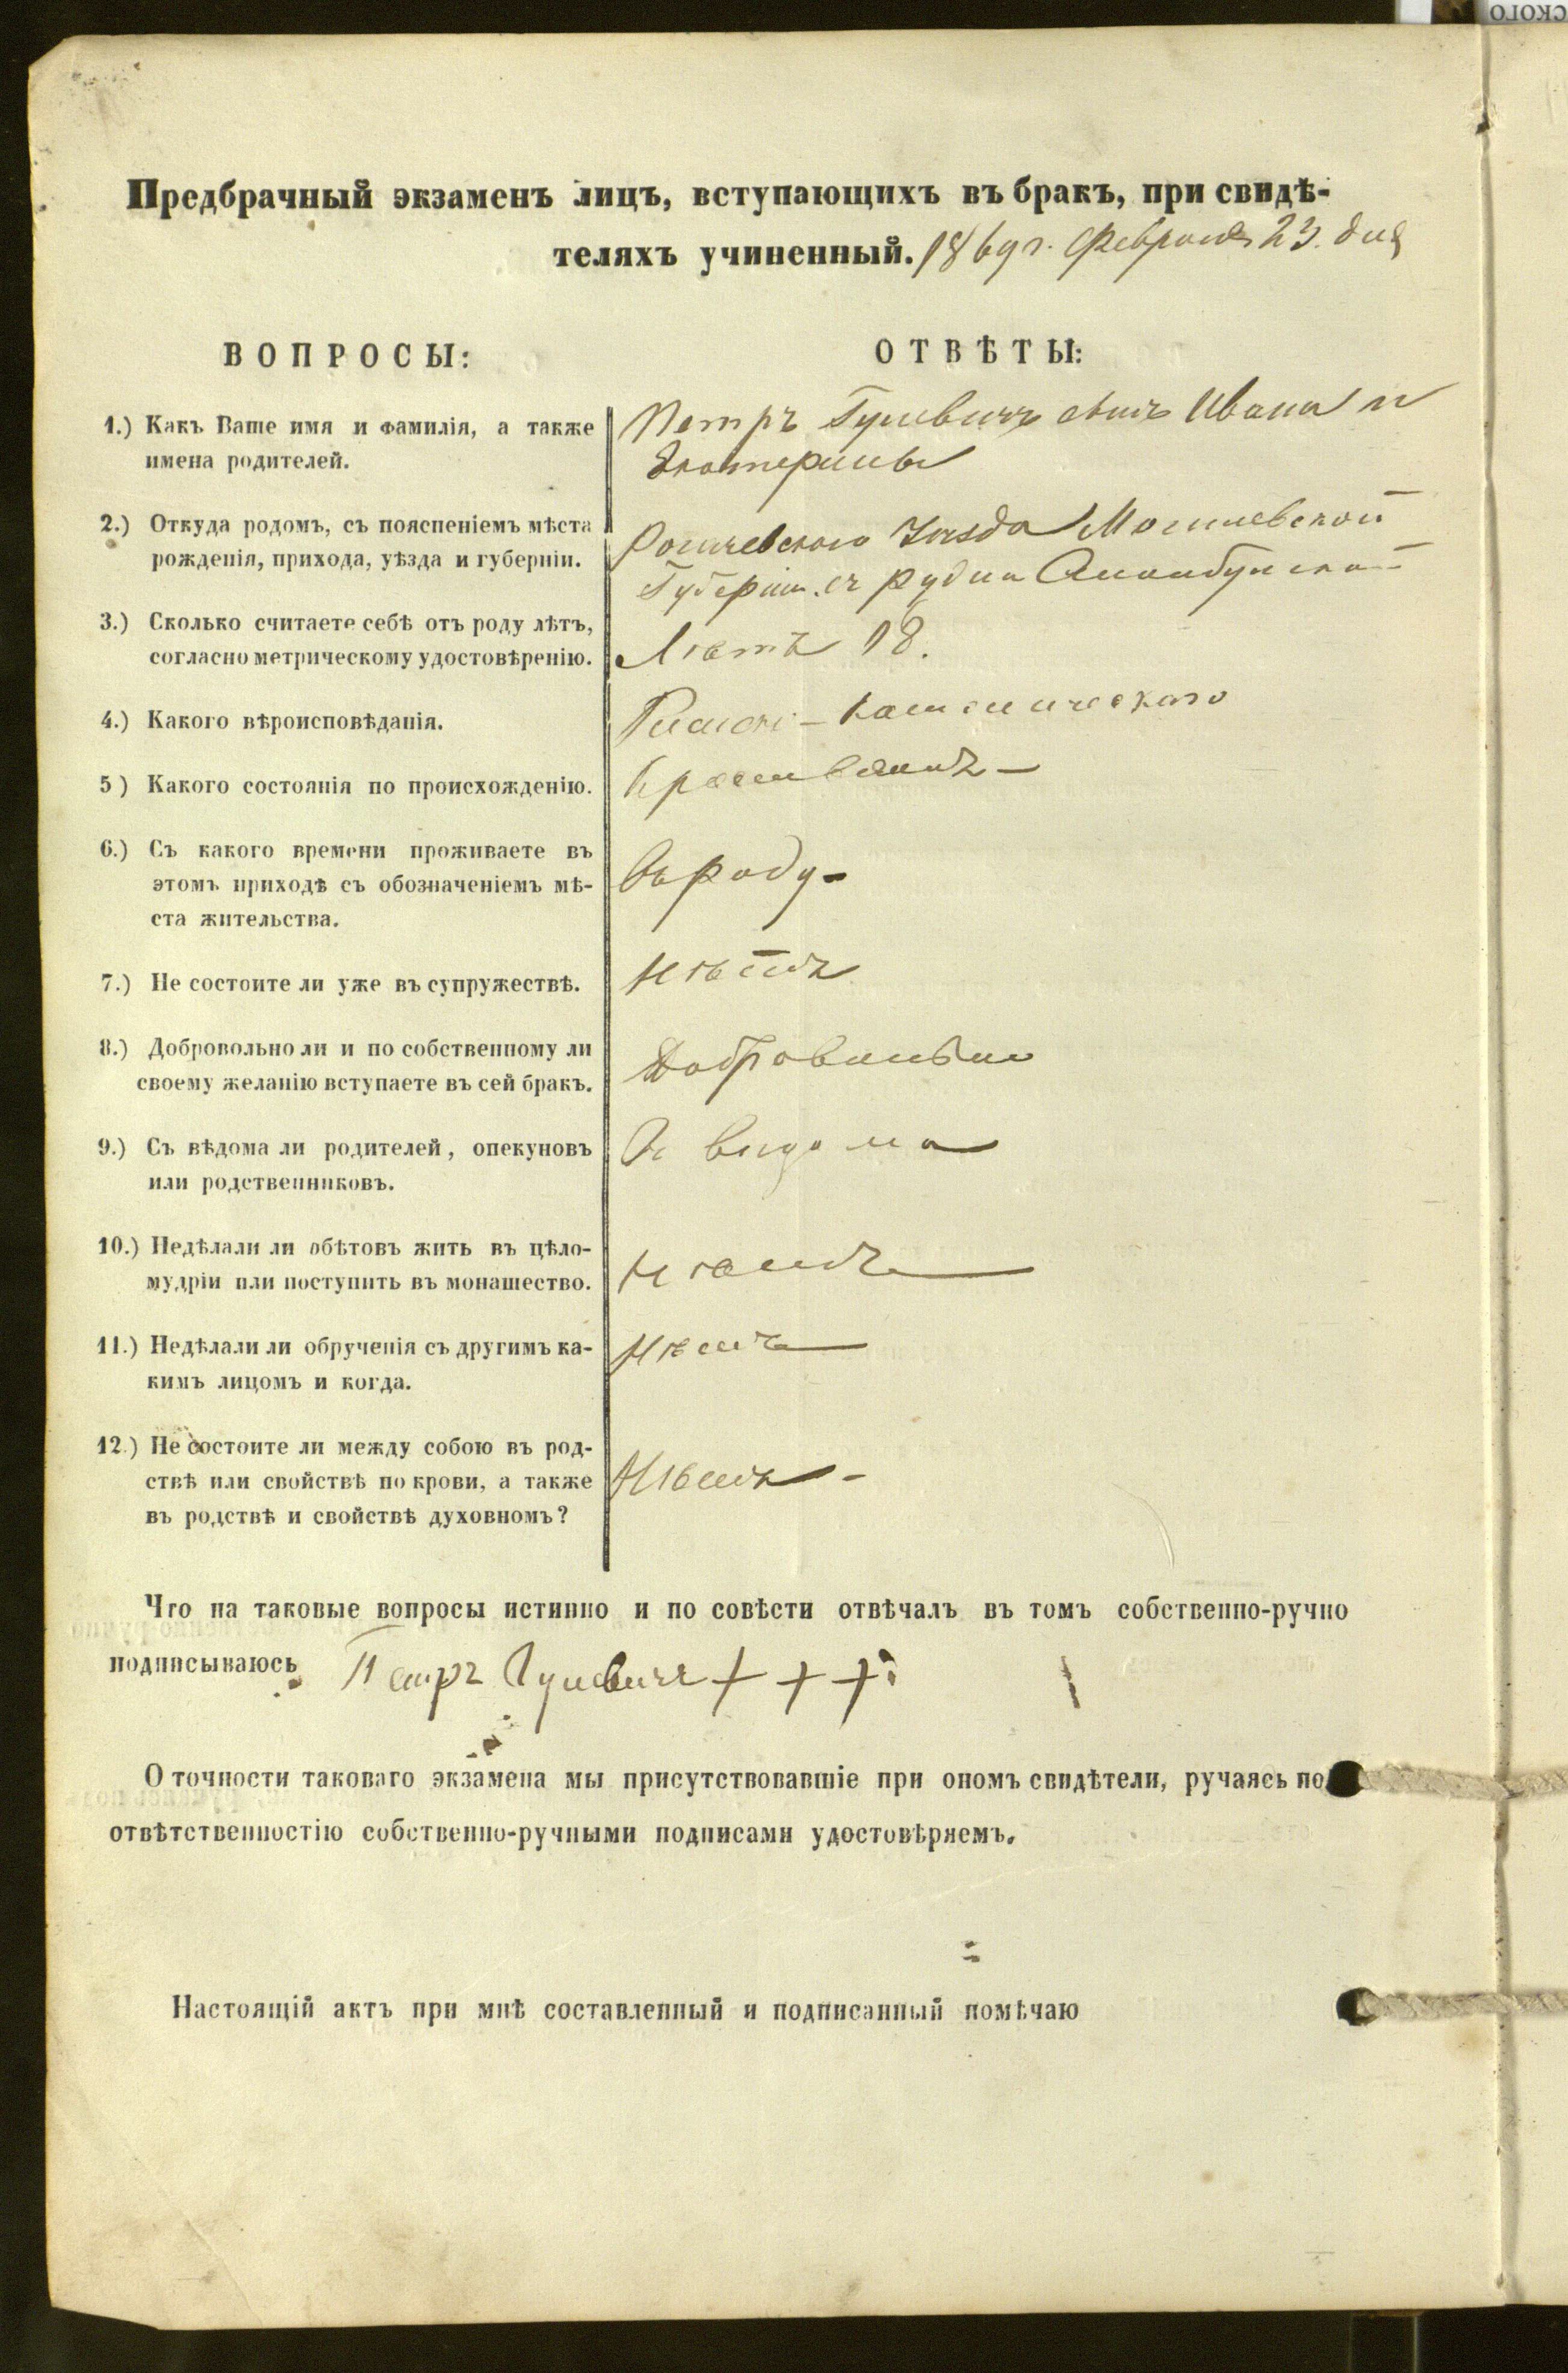 СКОГО
Предбрачный экзаменъ лицъ, вступающихъ въ бракъ, при свидѣ-
теляхъ учиненный. 1869 г. Февраля 23. дня
ВОПРОСЫ:
ОТВѢТЫ:
1.) Какъ Ваше имя и фамилія, а также
имена родителей.
Петръ Гулевичъ сынъ Ивана и
Екатерины
2.) Откуда родомъ, съ поясненіемъ мѣста
рожденія, прихода, уѣзда и губерніи.
Рогачевскаго Уѣзда Могилевской
Губерніи съ рудни
3.) Сколько считаете себѣ отъ роду лѣтъ,
согласно метрическому удостовѣренію.
Лѣтъ 18.
4.) Какого вѣроисповѣданія.
Римско-католическаго
5) Какого состоянія по происхожденію.
Крестьянинъ
6.) Съ какого времени проживаете въ
этомъ приходѣ съ обозначеніемъ мѣ-
ста жительства.
Съ роду
7.) Не состоите ли уже въ супружествѣ.
Нѣтъ
8.) Добровольно ли и по собственному ли
своему желанію вступаете въ сей бракъ.
Добровольно
9.) Съ вѣдома ли родителей, опекуновъ
или родственниковъ.
Съ вѣдома
10.) Недѣлали ли обѣтовъ жить въ цѣло-
мудріи или поступить въ монашество.
Нѣтъ
11.) Недѣлали ли обрученія съ другимъ ка-
кимъ лицомъ и когда.
Нѣтъ
12.) Не состоите ли между собою въ род-
ствѣ или свойствѣ по крови, а также
въ родствѣ и свойствѣ духовномъ?
Нѣтъ
Что на таковые вопросы истинно и по совѣсти отвѣчалъ въ томъ собственно-ручно
подписываюсь Петръ Гулевичъ + + +
О точности таковаго экзамена мы присутствовавшіе при ономъ свидѣтели, ручаясь по
отвѣтственностію собственно-ручными подписами удостовѣряемъ.
Настоящій актъ при мнѣ составленный и подписанный помѣчаю